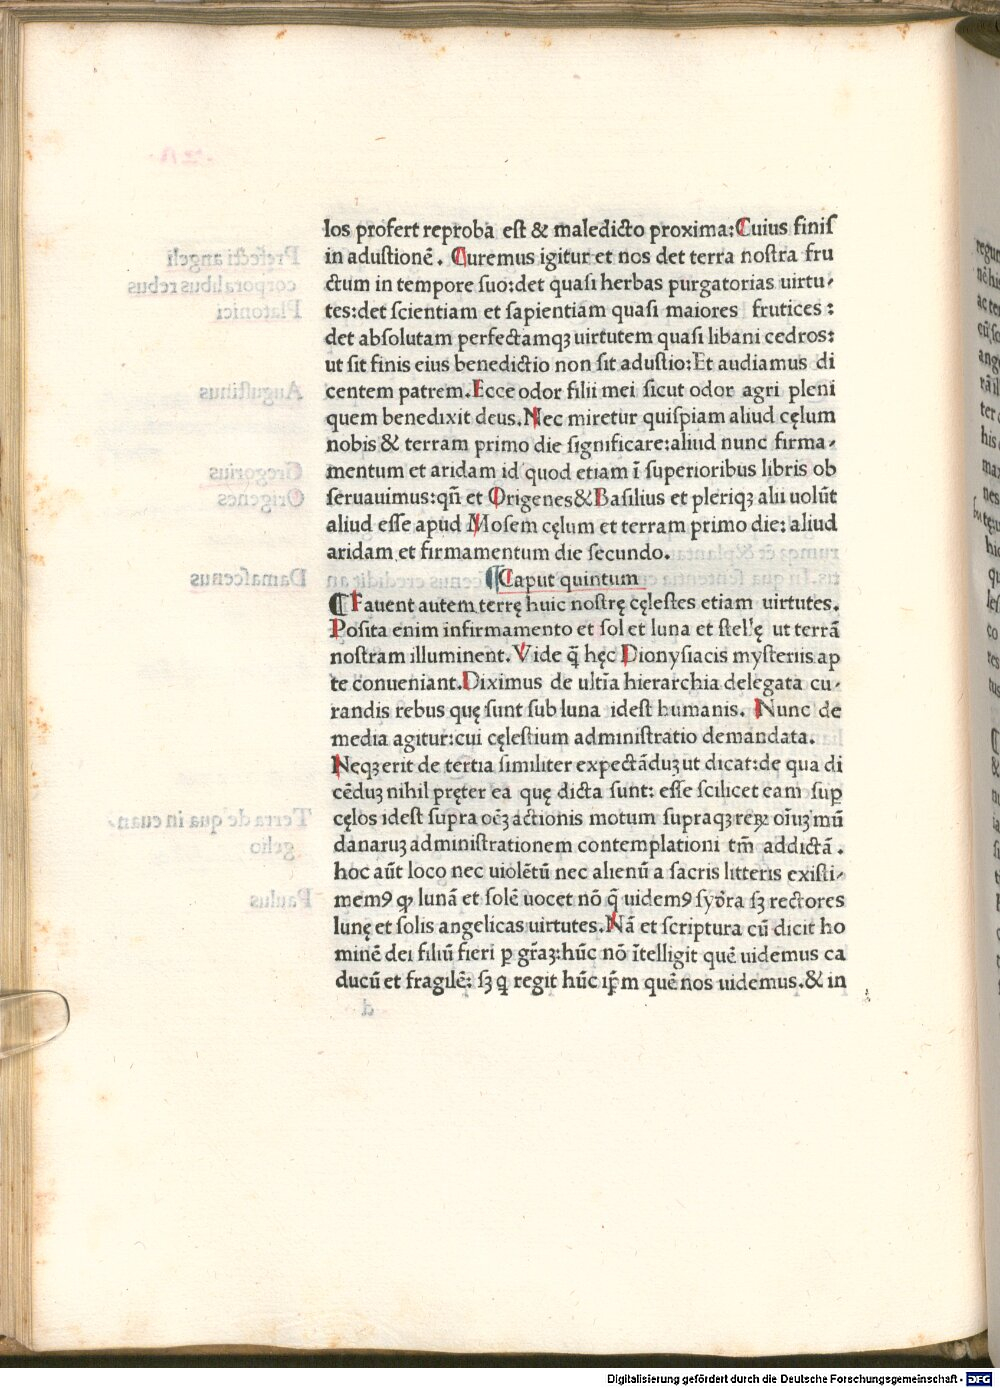 los profert reproba est & maledicto proxima:Cuius finis
in adustionē. Curemus igitur et nos det terra nostra fru
ctum in tempore suo:det quasi herbas purgatorias uirtu-
tes:det scientiam et sapientiam quasi maiores frutices:
det absolutam perfectamqꝫ uirtutem quasi libani cedros:
ut sit finis eius benedictio non sit adustio:Et audiamus di
centem patrem.Ecce odor filii mei sicut odor agri pleni
quem benedixit deus.Nec miretur quispiam aliud cęlum
nobis & terram primo die significare:aliud nunc firma-
mentum et aridam id quod etiam ī superioribus libris ob
seruauimus:qñ et Origenes&Basilius et pleriqꝫ alii uolūt
aliud esse apud Mosem cęlum et terram primo die: aliud
aridam et firmamentum die secundo.
¶Caput quintum
¶Fauent autem terrę huic nostrę cęlestes etiam uirtutes.
Posita enim infirmamento et sol et luna et stellę ut terrā
nostram illuminent.Vide q̄ hęc Dionysiacis mysteriis ap
te conueniant.Diximus de ultīa hierarchia delegata cu-
randis rebus quę sunt sub luna idest humanis. Nunc de
media agitur:cui cęlestium administratio demandata.
Neqꝫ erit de tertia similiter expectāduꝫ ut dicat:de qua di
cēduꝫ nihil pręter ea quę dicta sunt: esse scilicet eam suꝑ
cęlos idest supra oēꝫ actionis motum supraqꝫ reꝝ oīuꝫ mū
danaruꝫ administrationem contemplationi tm̄ addictā.
hoc aūt loco nec uiolētū nec alienū a sacris litteris existi-
memꝰ ꝙ lunā et solē uocet nō q̄ uidemꝰ syďra sꝫ rectores
lunę et solis angelicas uirtutes.Nā et scriptura cū dicit ho
minē dei filiū fieri ꝑ gr̄aꝫ:hūc nō ītelligit quē uidemus ca
ducū et fragilē: sꝫ q regit hūc ip̄m quē nos uidemus.& in
Digitalisierung gefördert durch die Deutsche Forschungsgemeinschaft - DFG